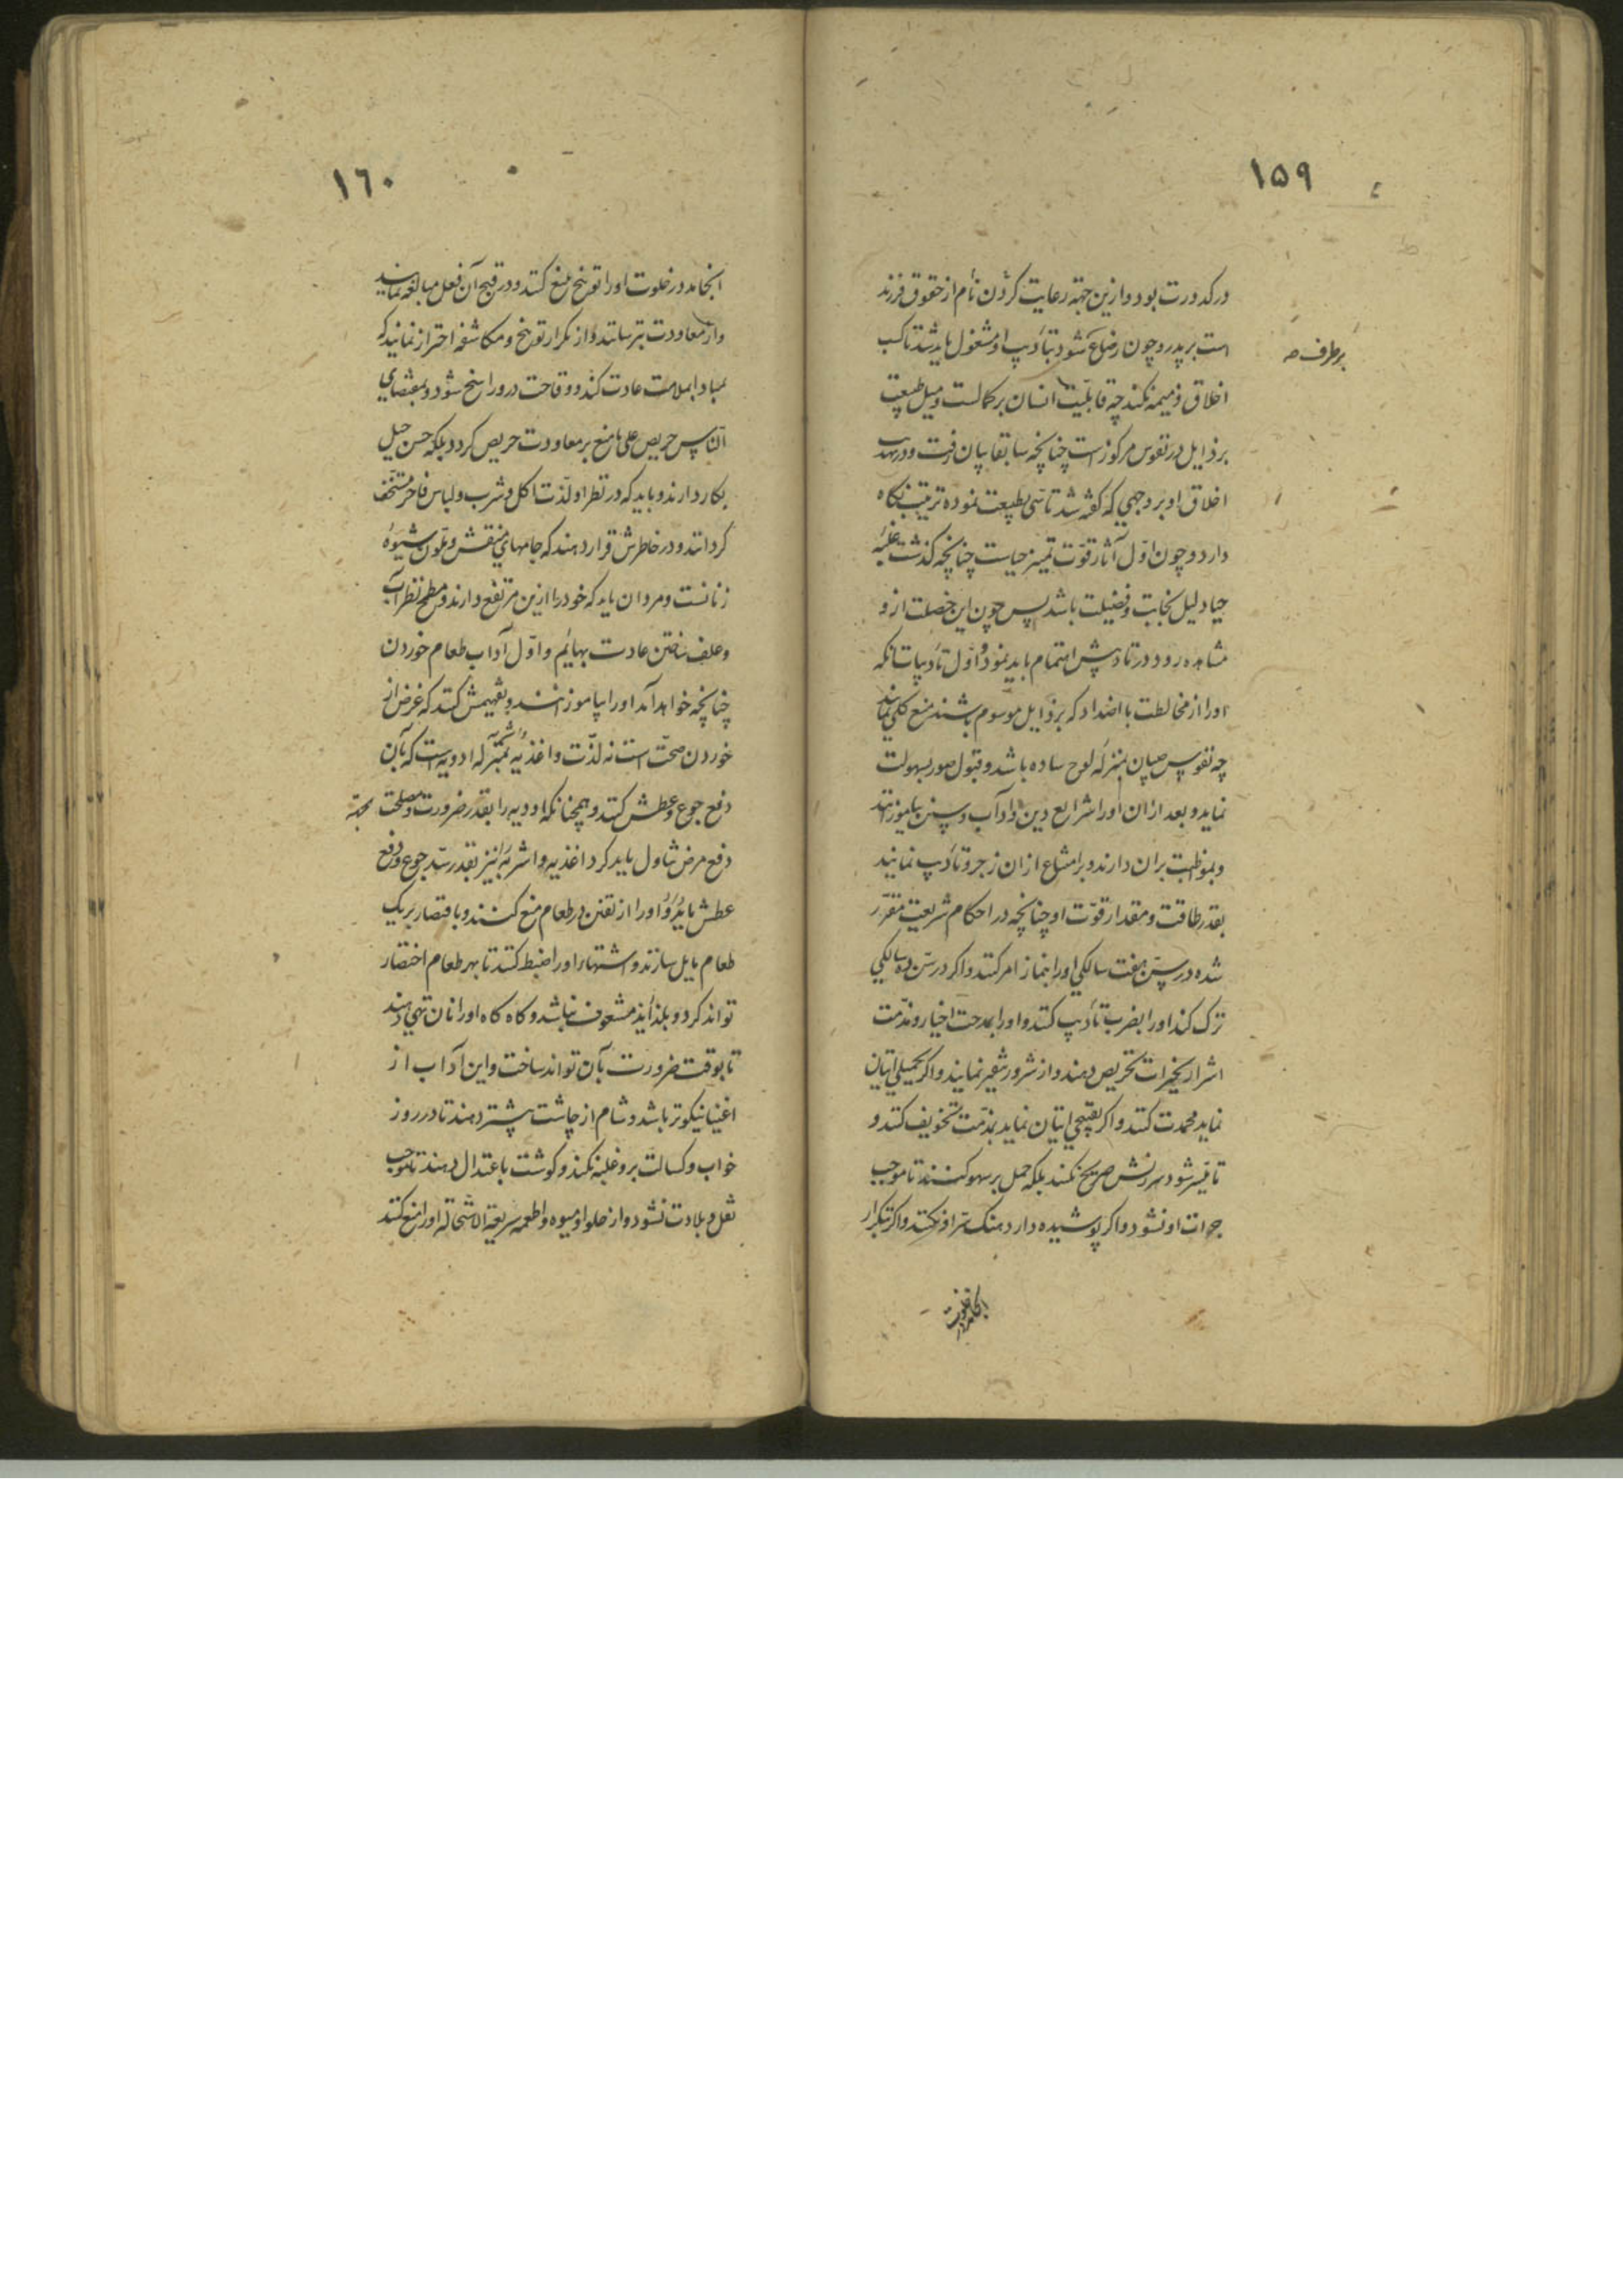 ١۵٩
در کدورت بود و ازین جهة رعایت کردن نام از حقوق فرزند
است بر پدر و چون رضاع شود بتأدیب او مشغول باید شد تا کسب
بر طرف صه
اخلاق ذمیمه نکند چه قابلیّت انسان بر کمالست و میل طبیعت
برذایل در نفوس مرکوز است چنانچه سابقا بیان رفت و در تهذیب
اخلاق او بر وجهی که گفته شد تأسّی بطبیعت نموده ترتیب نگاه
دارد و چون اوّل آثار قوّت تمییز حیاست چنانچه گذشت غلبهٔ
حیا دلیل نجابت و فضیلت باشد پس چون این خصلت از و
مشاهده رود در تأدیبش اهتمام باید نمود و اوّل تأدیبات آنکه
اورا از مخالطت با اضداد که برذایل موسوم باشند منع کلی نمایند
چه نفوس صبیان بمنزلهٔ لوح ساده باشد و قبول صور بسهولت
نماید و بعد ازان اورا شرایع دین و آداب و سنن بیاموزانند
و بمواظبت بران دارند و بر امتناع ازان زجر و تأدیب نمایند
بقدر طاقت و مقدار قوّت او چنانچه در احکام شریعت مقرّر
شده در سنّ هفت سالگی اورا بنماز امر کنند و اگر در سنّ ده سالگی
ترک کند اورا بضرب تأدیب کنند و اورا بمدحت اخیار و مذمّت
اشرار بخیرات تحریص دهند و از شرور تنفیر نمایند و اگر بجمیلی اتیان
نماید محمدت کنند و اگر بقبیحی اتیان نماید بمذمّت تخویف کنند و
تا میسّر شود سرزنش صریح نکنند بلکه حمل بر سهو کنند تا موجب
جرات او نشود و اگر پوشیده دارد هتک ستر او نکنند و اگر تکرار
انجامد در خلوت
١٦٠
انجامد در خلوت اورا توبیخ بلیغ کنند و در قبح آن فعل مبالغه نمایند
و از معاودت بترسانند و از تکرار توبیخ و مکاشفه احتراز نمایند که
مبادا بملامت عادت کند و وقاحت درو راسخ شود و بمقتضای
النّاس حریص علی ما منع بر معاودت حریص گردد بلکه حسن حیل
بکار دارند و باید که در نظر او لذّت اکل و شرب و لباس فاخر مستخف
گردانند و در خاطرش قرار دهند که جامهای منقش و ملوّن شیوهٔ
زنانست و مردان باید که خود را ازین مرتفع دارند و مطمح نظر آب
و علف ساختن عادت بهائم و اوّل آداب طعام خوردن
چنانچه خواهد آمد اورا بیاموزانند و تفهیمش کنند که غرض از
خوردن صحّت است نه لذّت و اغذیه و اشربه بمنزلهٔ ادویه است که بآن
دفع جوع و عطش کنند و همچنانکه ادویه را بقدر ضرورت و مصلحت بجهة
دفع مرض تناول باید کرد اغذیه و اشربه نیز بقدر سدّ جوع و دفع
عطش باید و اورا از تفنّن در طعام منع کنند و باقتصار بر یک
طعام مایل سازند و اشتهاء اورا ضبط کنند تا بهر طعام اختصار
تواند کرد و بلذایذ مشعوف نباشد و گاه گاه اورا نان تهی دهند
تا بوقت ضرورت بآن تواند ساخت و این آداب از
اغنیا نیکوتر باشد و شام از چاشت بیشتر دهند تا در روز
خواب و کسالت برو غلبه نکند و گوشت باعتدال دهند تا موجب
ثقل و بلادت نشود و از حلوا و میوه و اطعمه سریعة الاستحاله اورا منع کنند